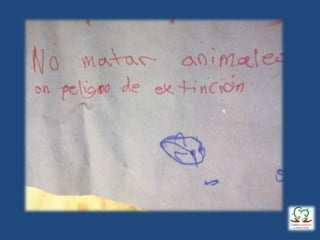 No matar animales
en peligro de extinción